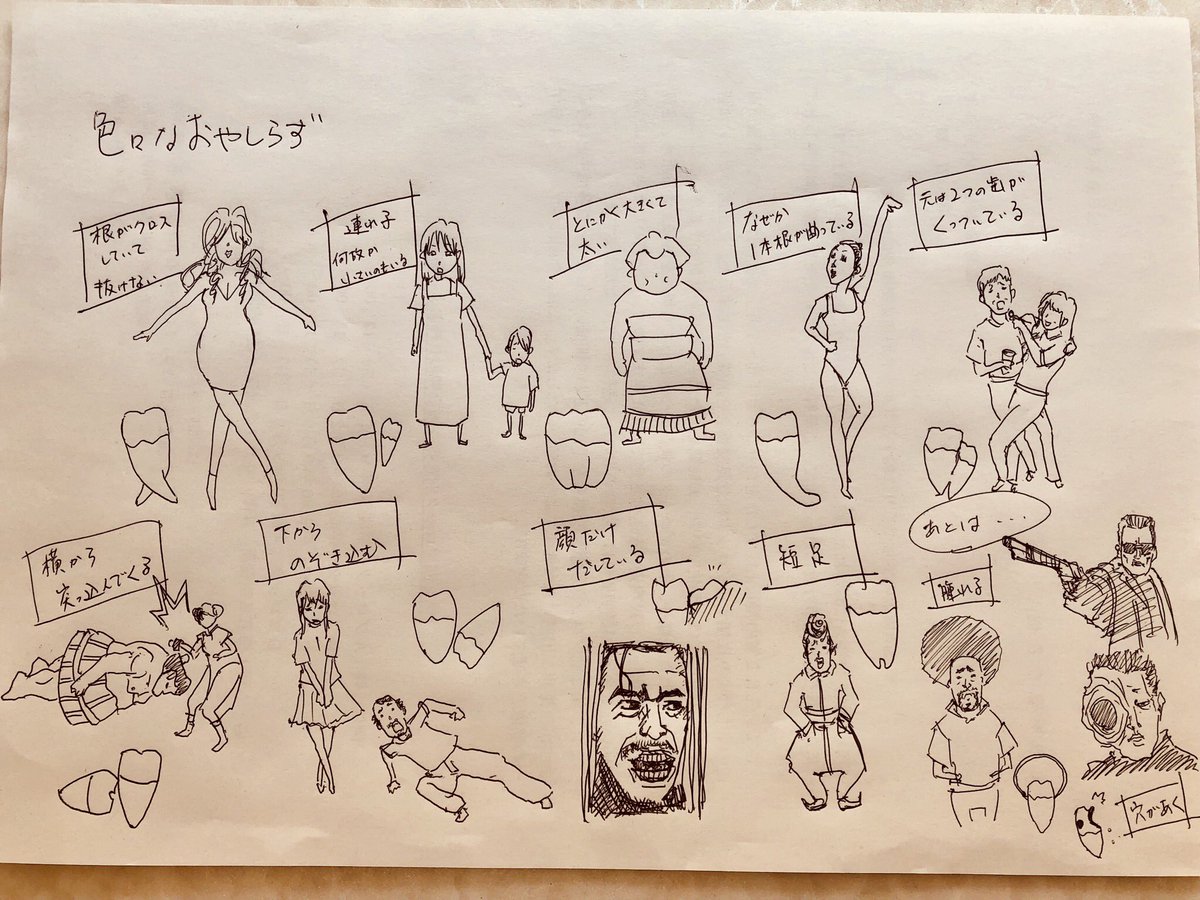 色々なおやしらず
根がクロス
していて
抜けない
連れ子
何故か
小さいのもいる
とにかく大きくて
太い
なぜか
1本根が曲っている
元は2つの歯が
くっついている
横から
突っ込んでくる
下から
のぞき込む
顔だけ
だしている
短足
あとは・・・
腫れる
穴があく